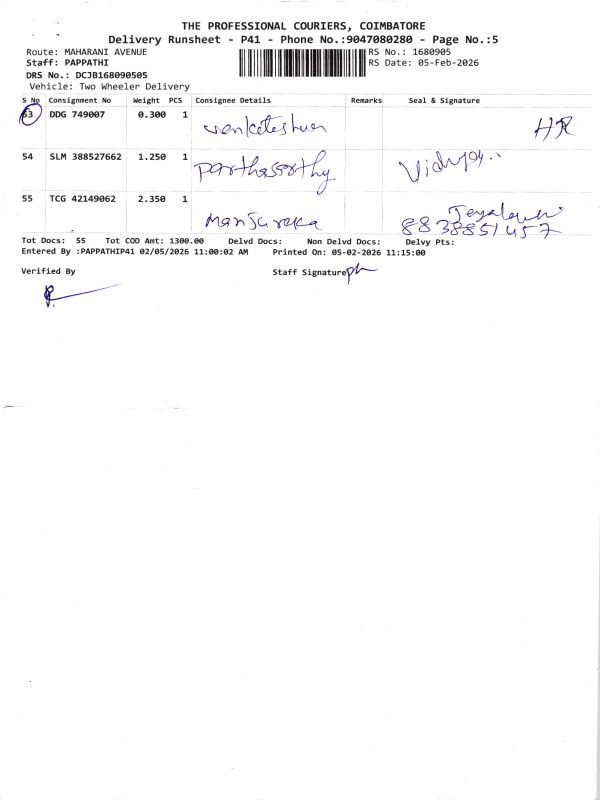 THE PROFESSIONAL COURIERS, COIMBATORE
Delivery Runsheet - P41 - Phone No.:9047080280 - Page No.:5
Route: MAHARANI AVENUE RS No.: 1680905
Staff: PAPPATHI RS Date: 05-Feb-2026
DRS No.: DCJB168090505
Vehicle: Two Wheeler Delivery
S No Consignment No Weight PCS Consignee Details Remarks Seal & Signature
53 DDG 749007 0.300 1 HR
54 SLM 388527662 1.250 1 Parthasorthy Vidhya
55 TCG 42149062 2.350 1
8838851457
Tot Docs: 55 Tot COD Amt: 1300.00 Delvd Docs: Non Delvd Docs: Delvy Pts:
Entered By :PAPPATHIP41 02/05/2026 11:00:02 AM Printed On: 05-02-2026 11:15:00
Verified By Staff Signature